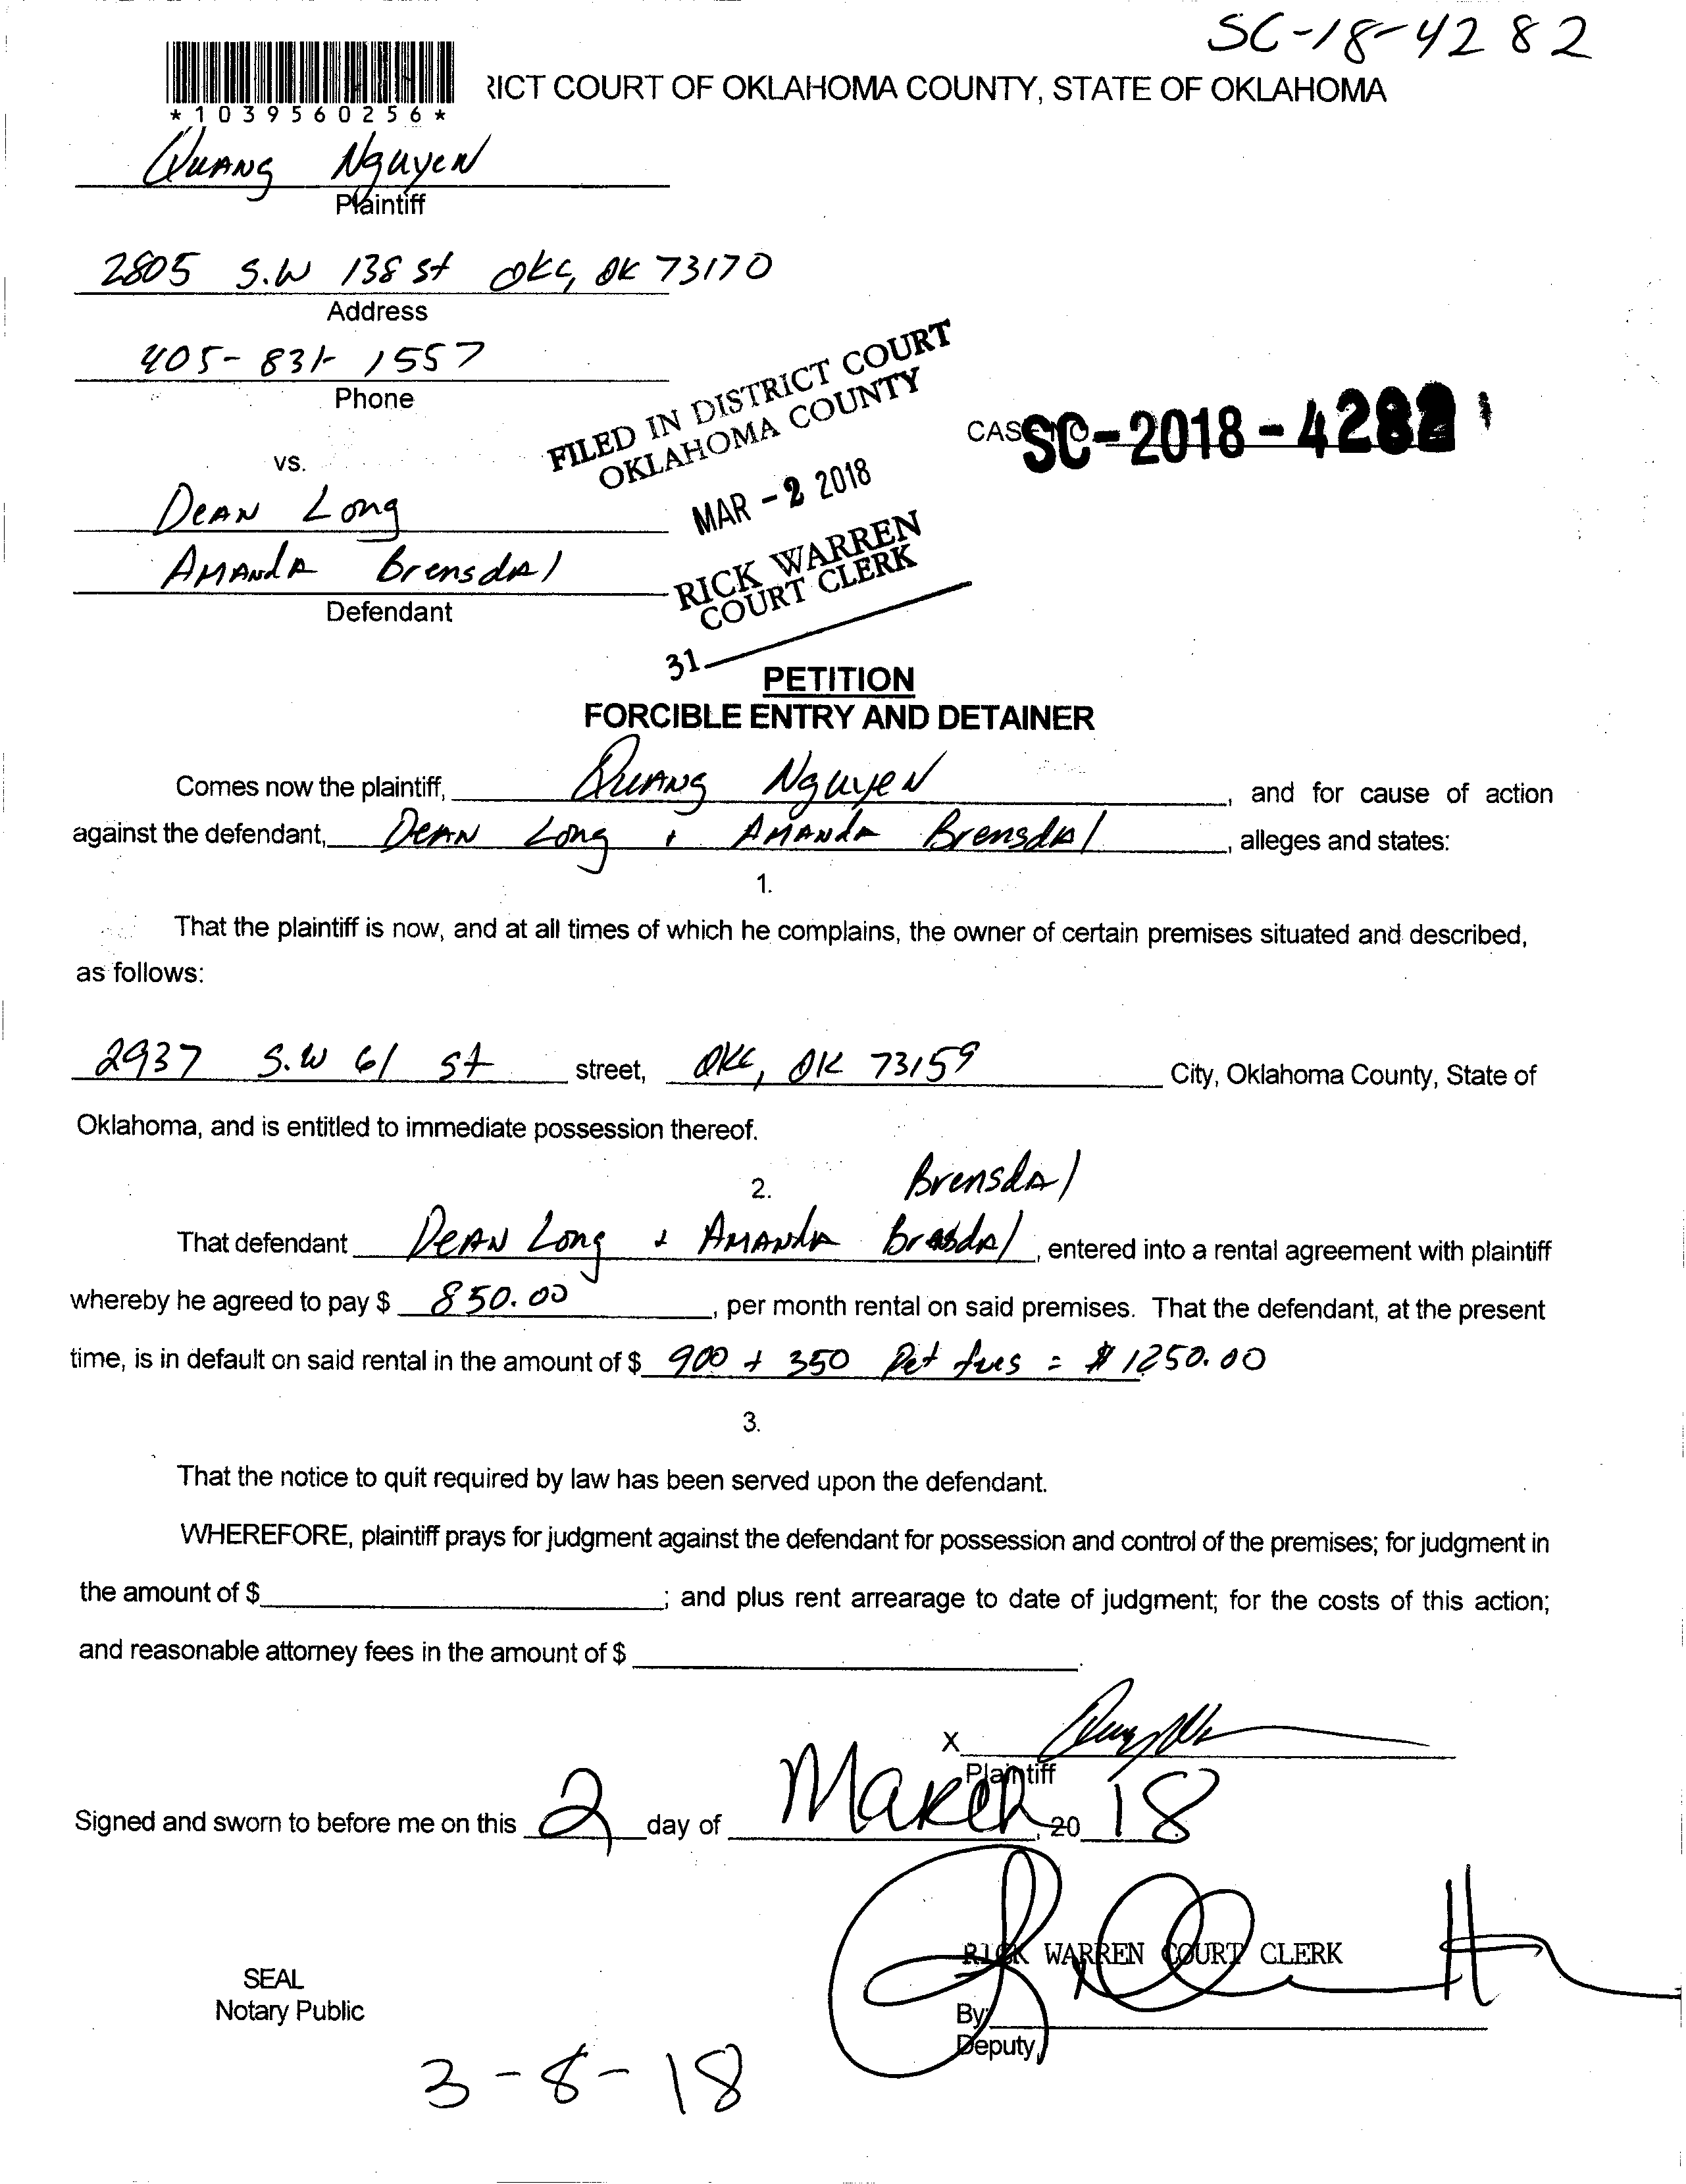 SC-18-4282
RICT COURT OF OKLAHOMA COUNTY, STATE OF OKLAHOMA
*1039560256*
Quang Nguyen
Plaintiff
2805 S.W 138 st OKC, OK 73170
Address
405-831-1557
Phone
FILED IN DISTRICT COURT
OKLAHOMA COUNTY
MAR - 2 2018
RICK WARREN
COURT CLERK
31
CAS SC-2018-4282
vs.
Dean Long
Amanda Brensdal
Defendant
PETITION
FORCIBLE ENTRY AND DETAINER
Comes now the plaintiff, Quang Nguyen, and for cause of action
against the defendant, Dean Long + Amanda Brensdal, alleges and states:
1.
That the plaintiff is now, and at all times of which he complains, the owner of certain premises situated and described,
as follows:
2937 S.W 61 st street, OKC, OK 73159 City, Oklahoma County, State of
Oklahoma, and is entitled to immediate possession thereof.
2.
Brensdal
That defendant Dean Long + Amanda, entered into a rental agreement with plaintiff
whereby he agreed to pay $ 850.00, per month rental on said premises. That the defendant, at the present
time, is in default on said rental in the amount of $ 900 + 350 Pet fees = $1250.00
3.
That the notice to quit required by law has been served upon the defendant.
WHEREFORE, plaintiff prays for judgment against the defendant for possession and control of the premises; for judgment in
the amount of $ ; and plus rent arrearage to date of judgment; for the costs of this action;
and reasonable attorney fees in the amount of $ .
X
Plaintiff
Signed and sworn to before me on this 2 day of March, 20 18
RICK WARREN COURT CLERK
SEAL
Notary Public
By:
Deputy
3-8-18